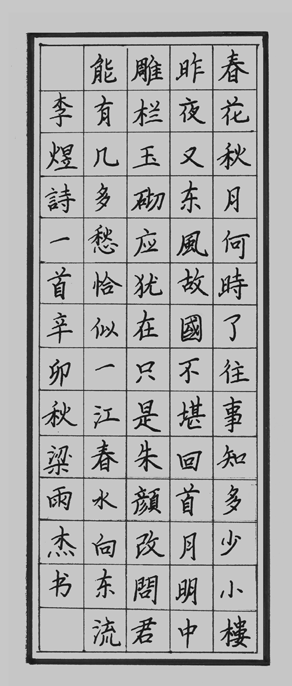 春花秋月何時了往事知多少小樓
昨夜又东風故國不堪回首月明中
雕栏玉砌应犹在只是朱顔改問君
能有几多愁恰似一江春水向东流
李煜詩一首辛卯秋梁雨杰书